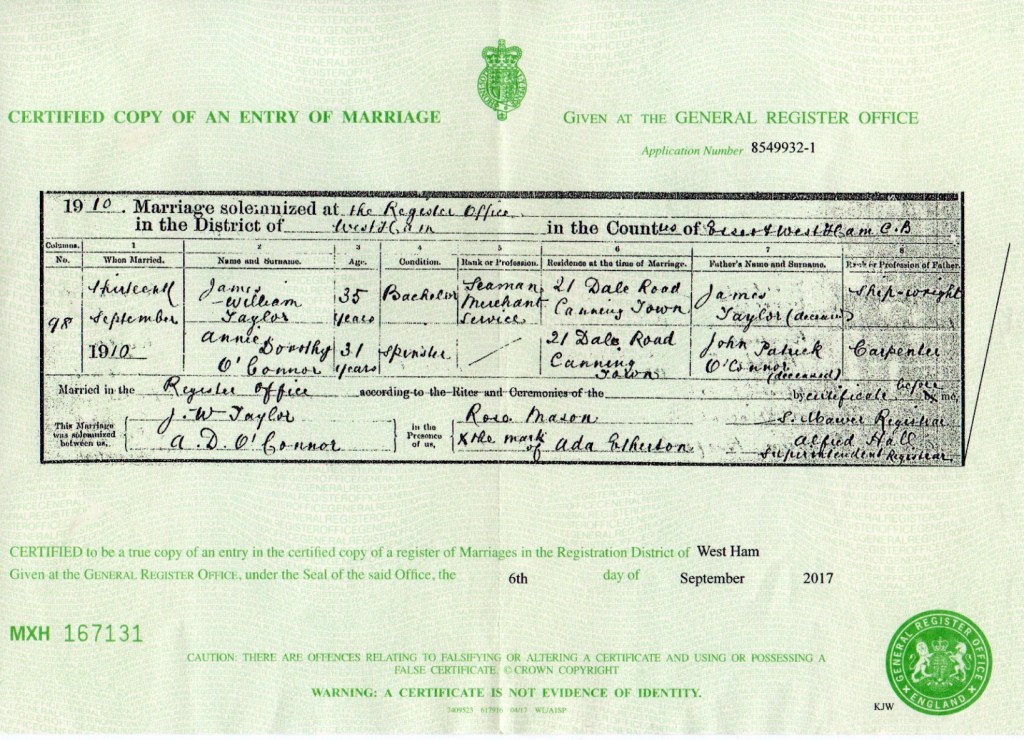 CERTIFIED COPY OF AN ENTRY OF MARRIAGE
GIVEN AT THE GENERAL REGISTER OFFICE
Application Number 8549932-1
1910. Marriage solemnized at the Register Office
in the District of West Ham in the Counties of Essex & West Ham C.B
Columns. 1 2 3 4 5 6 7 8
No. When Married. Name and Surname. Age. Condition. Rank or Profession. Residence at the time of Marriage. Father's Name and Surname. Rank or Profession of Father.
98
September
1910
James
William
Taylor
35
years
Bachelor
Seaman
Merchant
Service
21 Dale Road
Canning Town
James
Taylor (deceased)
Ship-wright
Annie
Dorothy
O'Connor
31
years
Spinster
21 Dale Road
Canning
Town
John Patrick
O'Connor
(deceased)
Carpenter
Married in the Register Office according to the Rites and Ceremonies of the by certificate before me,
This Marriage
was solemnized
between us,
J. W Taylor
A. D. O'Connor
in the
Presence
of us,
Rose Mason
X the mark
of Ada Etherton
S. Mawer Registrar
Alfred Hall
Superintendent Registrar
CERTIFIED to be a true copy of an entry in the certified copy of a register of Marriages in the Registration District of West Ham
Given at the GENERAL REGISTER OFFICE, under the Seal of the said Office, the 6th day of September 2017
MXH 167131
CAUTION: THERE ARE OFFENCES RELATING TO FALSIFYING OR ALTERING A CERTIFICATE AND USING OR POSSESSING A
FALSE CERTIFICATE. © CROWN COPYRIGHT
WARNING: A CERTIFICATE IS NOT EVIDENCE OF IDENTITY.
GENERAL REGISTER OFFICE
ENGLAND
KJW